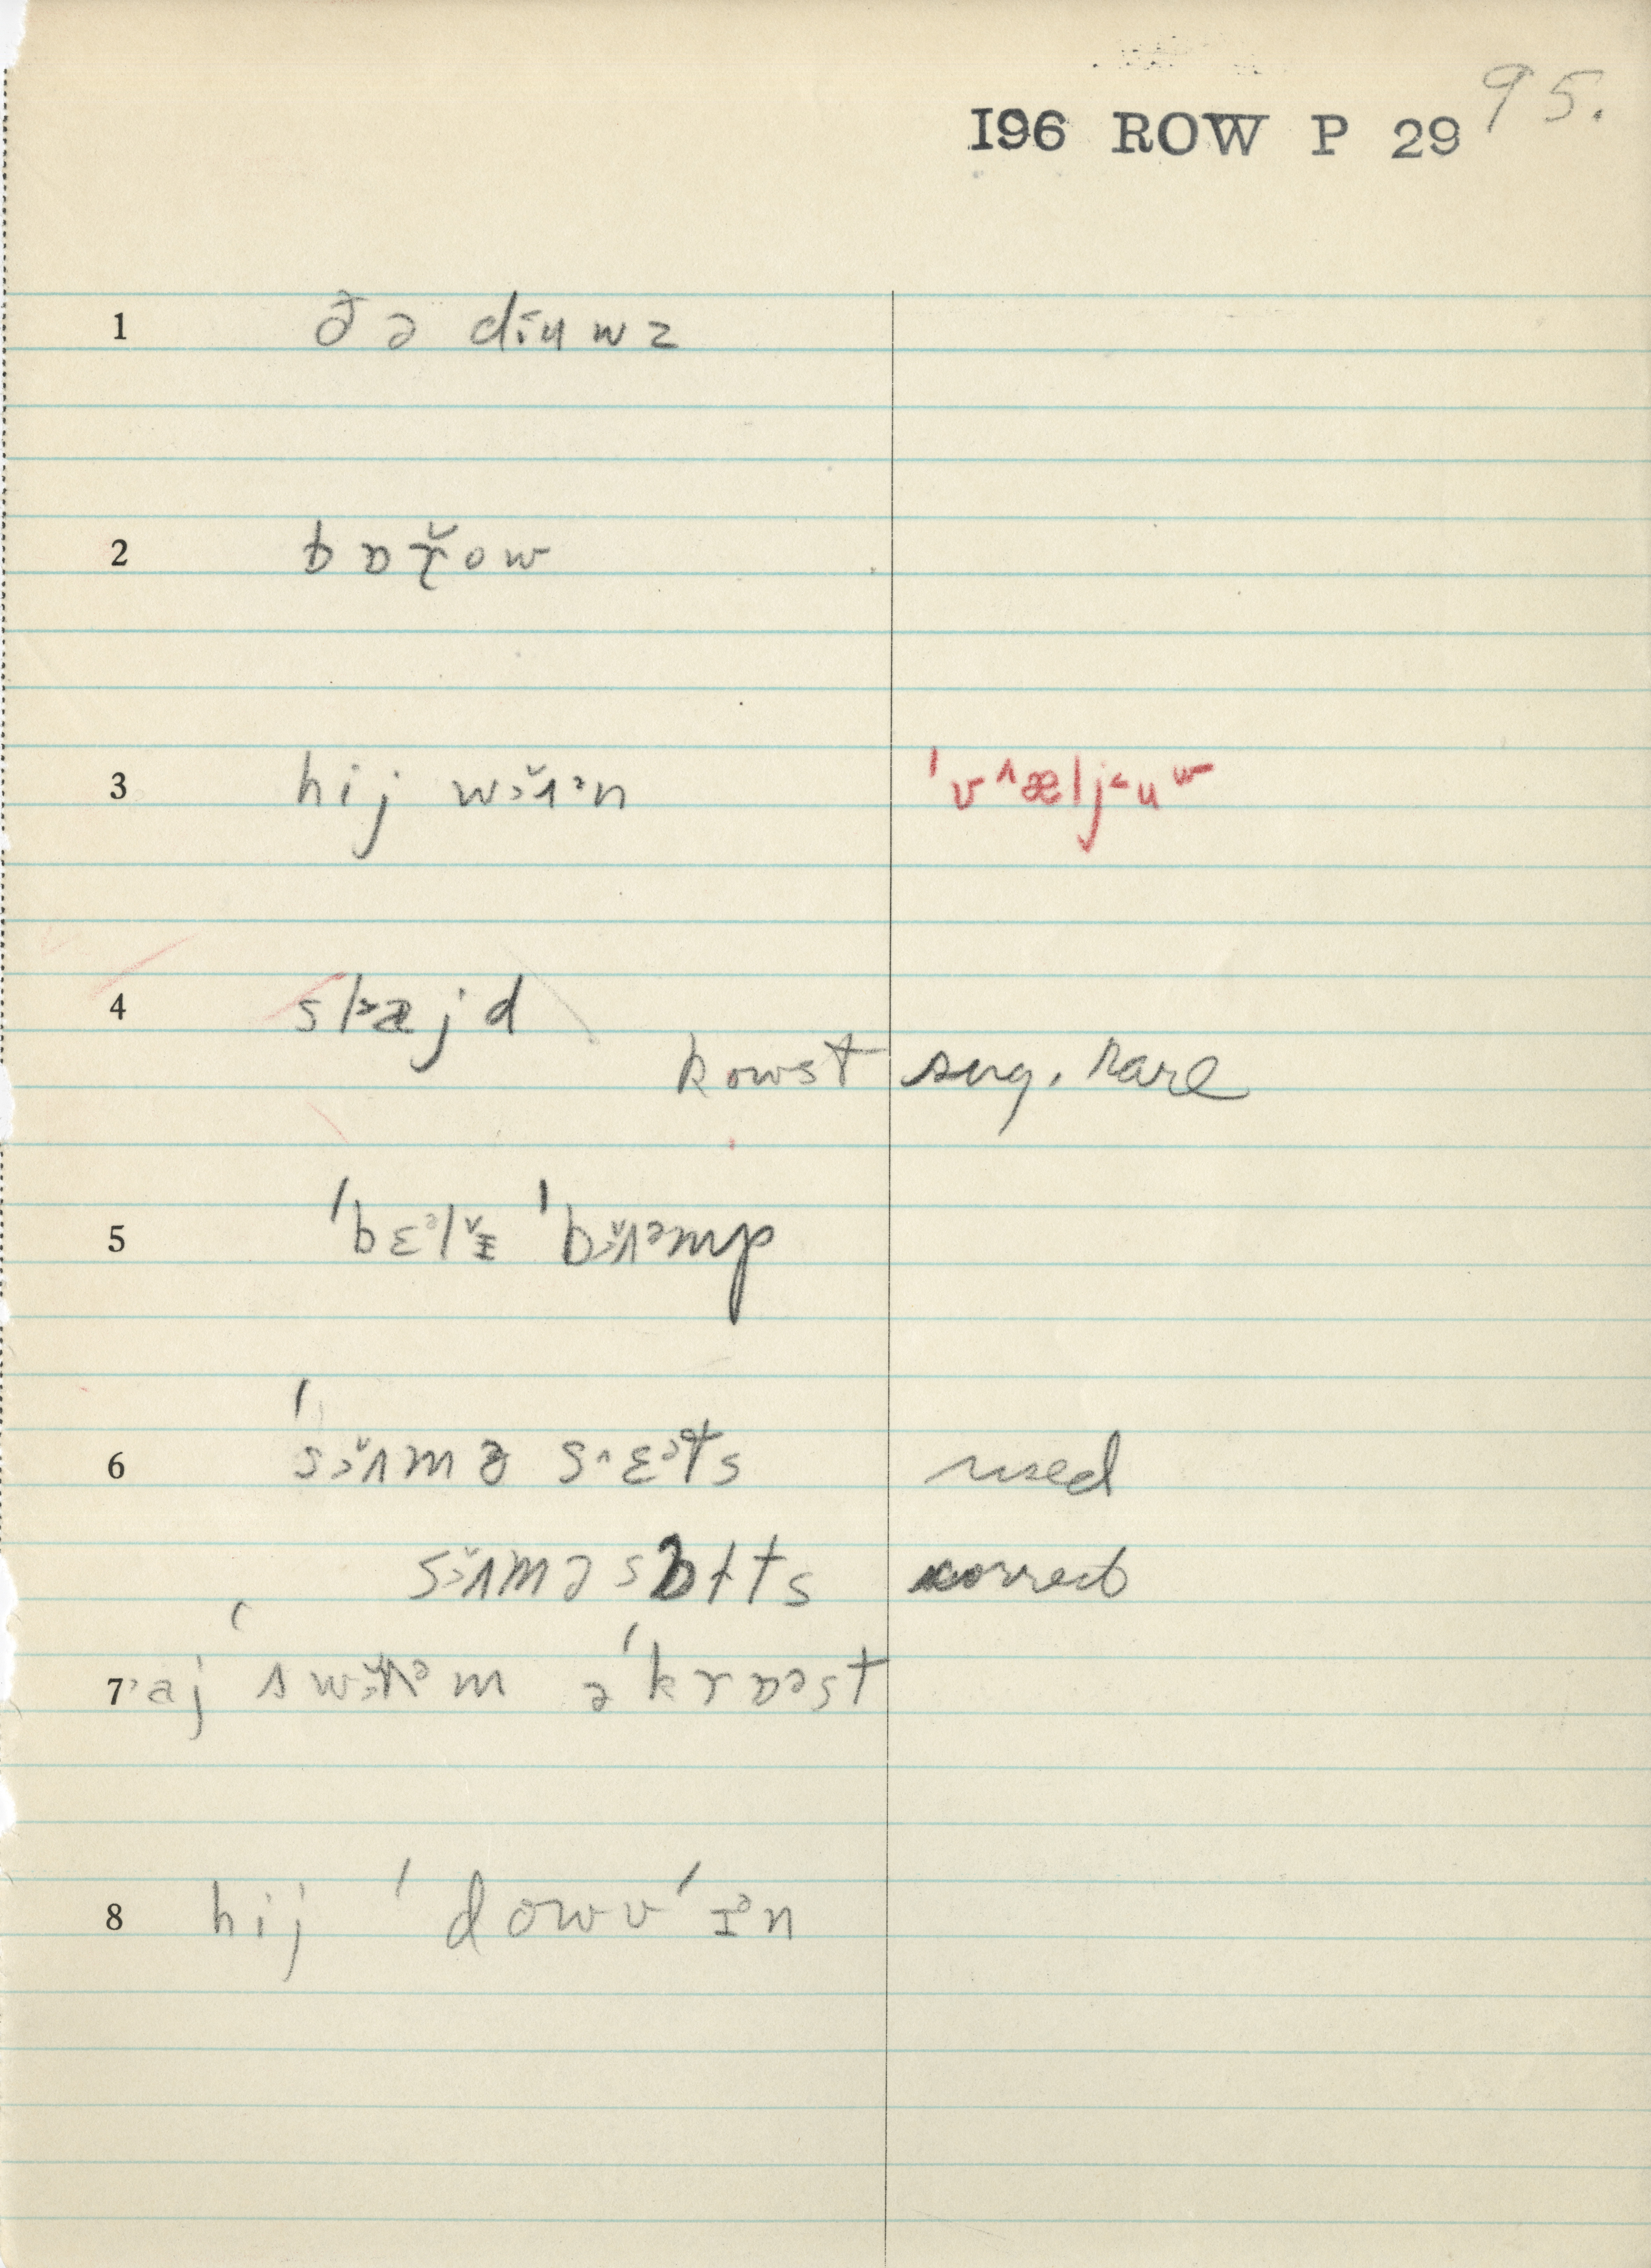 I96 ROW P 29 95.
1 ðə dɨ˂uwz
2 bɒř̬ow
3 hij w˃ʌ̌ᵊn ˈv˄ælj˂uʷ
4 sl˃ajd
kowst sug. rare
5 ˈbɛᵊlɪ̌ ˈb˃ʌ̌ᵊmp
6 ˈs˃ʌ̌mə s˄ɛᵊts used
s˃ʌ̌məsɒlts correct
7 ˃aj ˈsw˃ʌ̌ᵊm əˈkrɒᵊst
8 hij ˈdowvˈɪᵊn